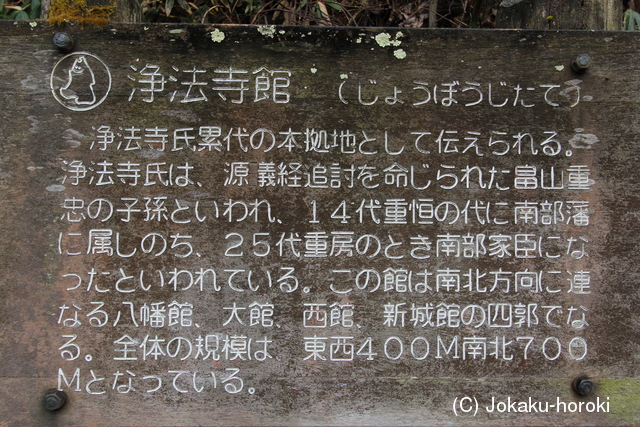 浄法寺館　（じょうぼうじたて）
浄法寺氏累代の本拠地として伝えられる。
浄法寺氏は、源義経追討を命じられた畠山重
忠の子孫といわれ、１４代重恒の代に南部藩
に属しのち、２５代重房のとき南部家臣にな
ったといわれている。この館は南北方向に連
なる八幡館、大館、西館、新城館の四郭でな
る。全体の規模は　東西４００Ｍ南北７００
Ｍとなっている。
(C) Jokaku-horoki